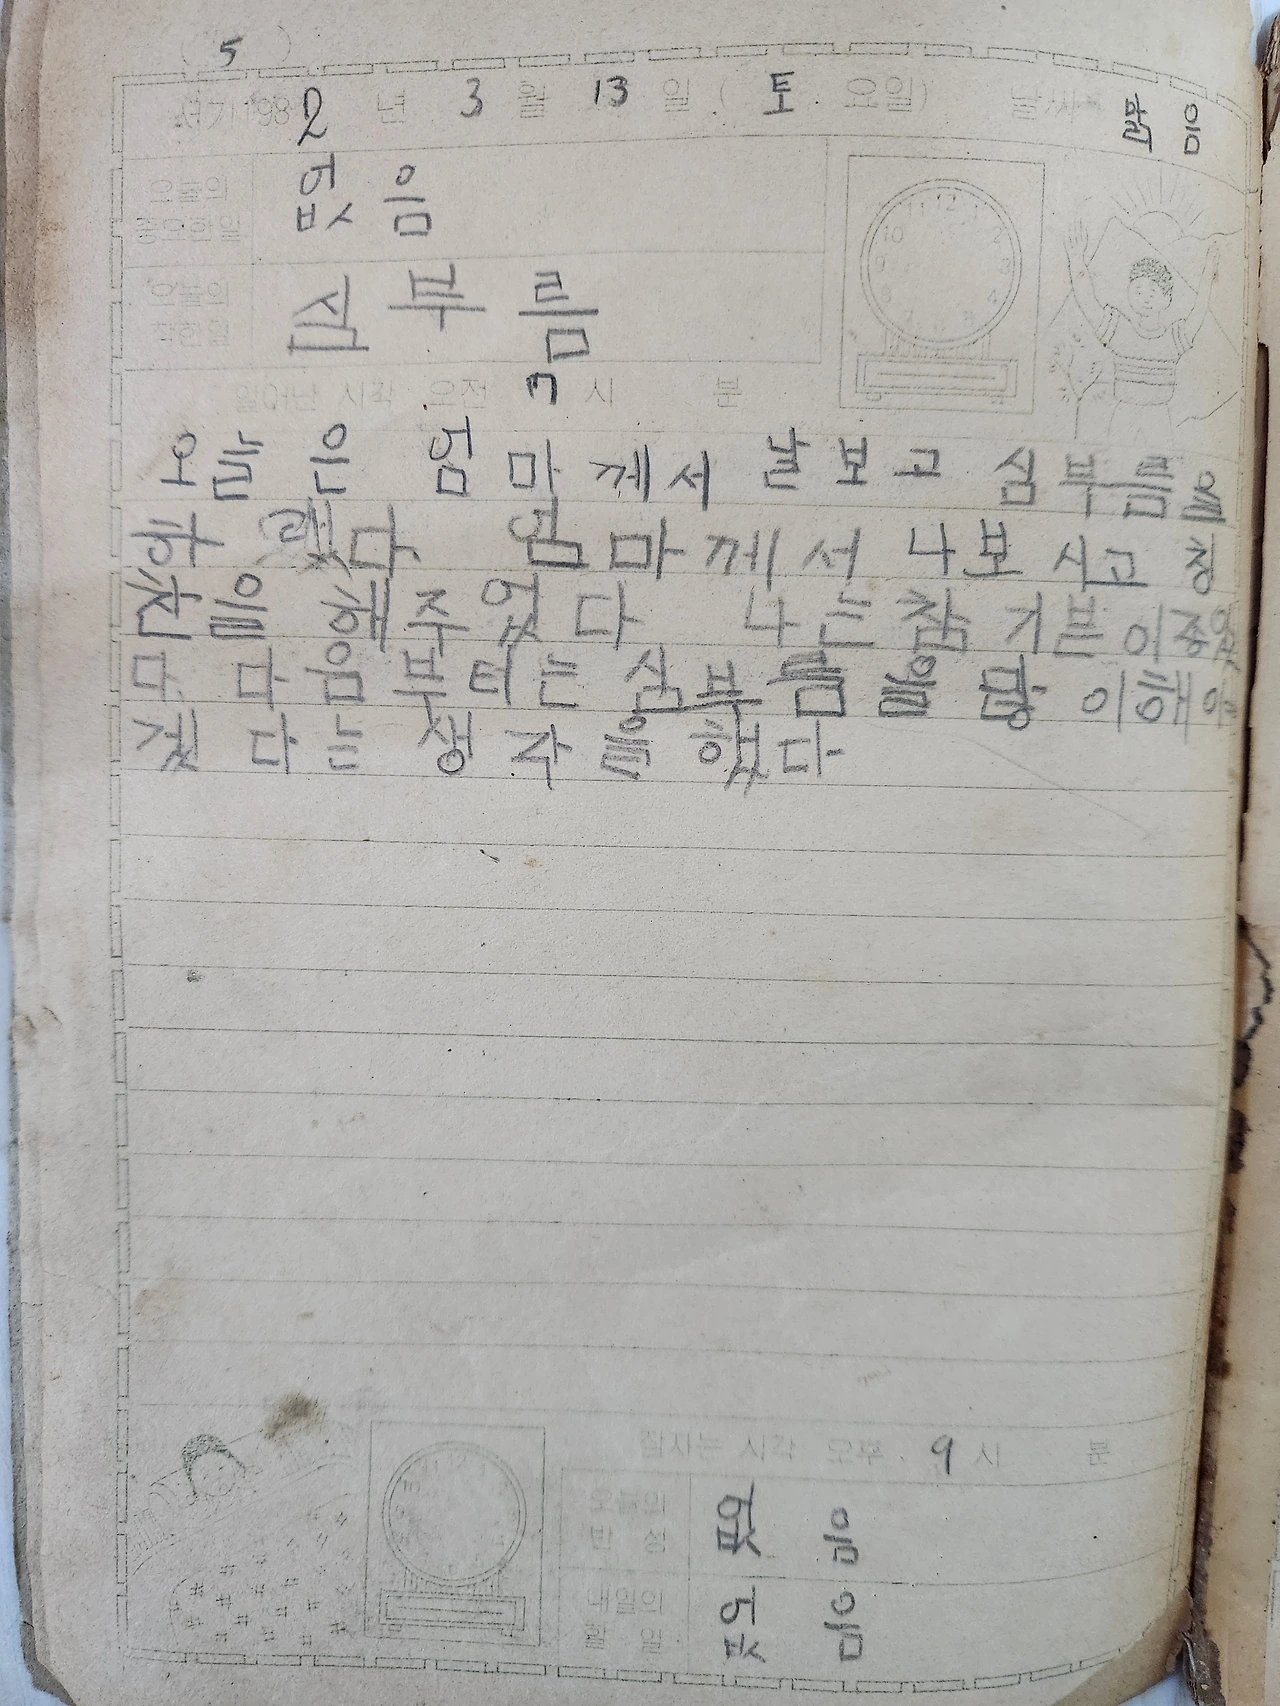 ( 5 )
서기 1982 년 3 월 13 일 ( 토 요일) 날씨 맑음
오늘의 중요한일 없음
오늘의 착한일 심부름
일어난 시각 오전 7 시 분
오늘은 엄마께서 날보고 심부름을
하랬다. 엄마께서 나보시고 칭
찬을 해주었다 나는 참 기분이좋았
다 다음부터는 심부름을 많이해야
겠다는 생각을 했다
잠자는 시각 오후 9 시 분
오늘의 반성 없음
내일의 할일 없음